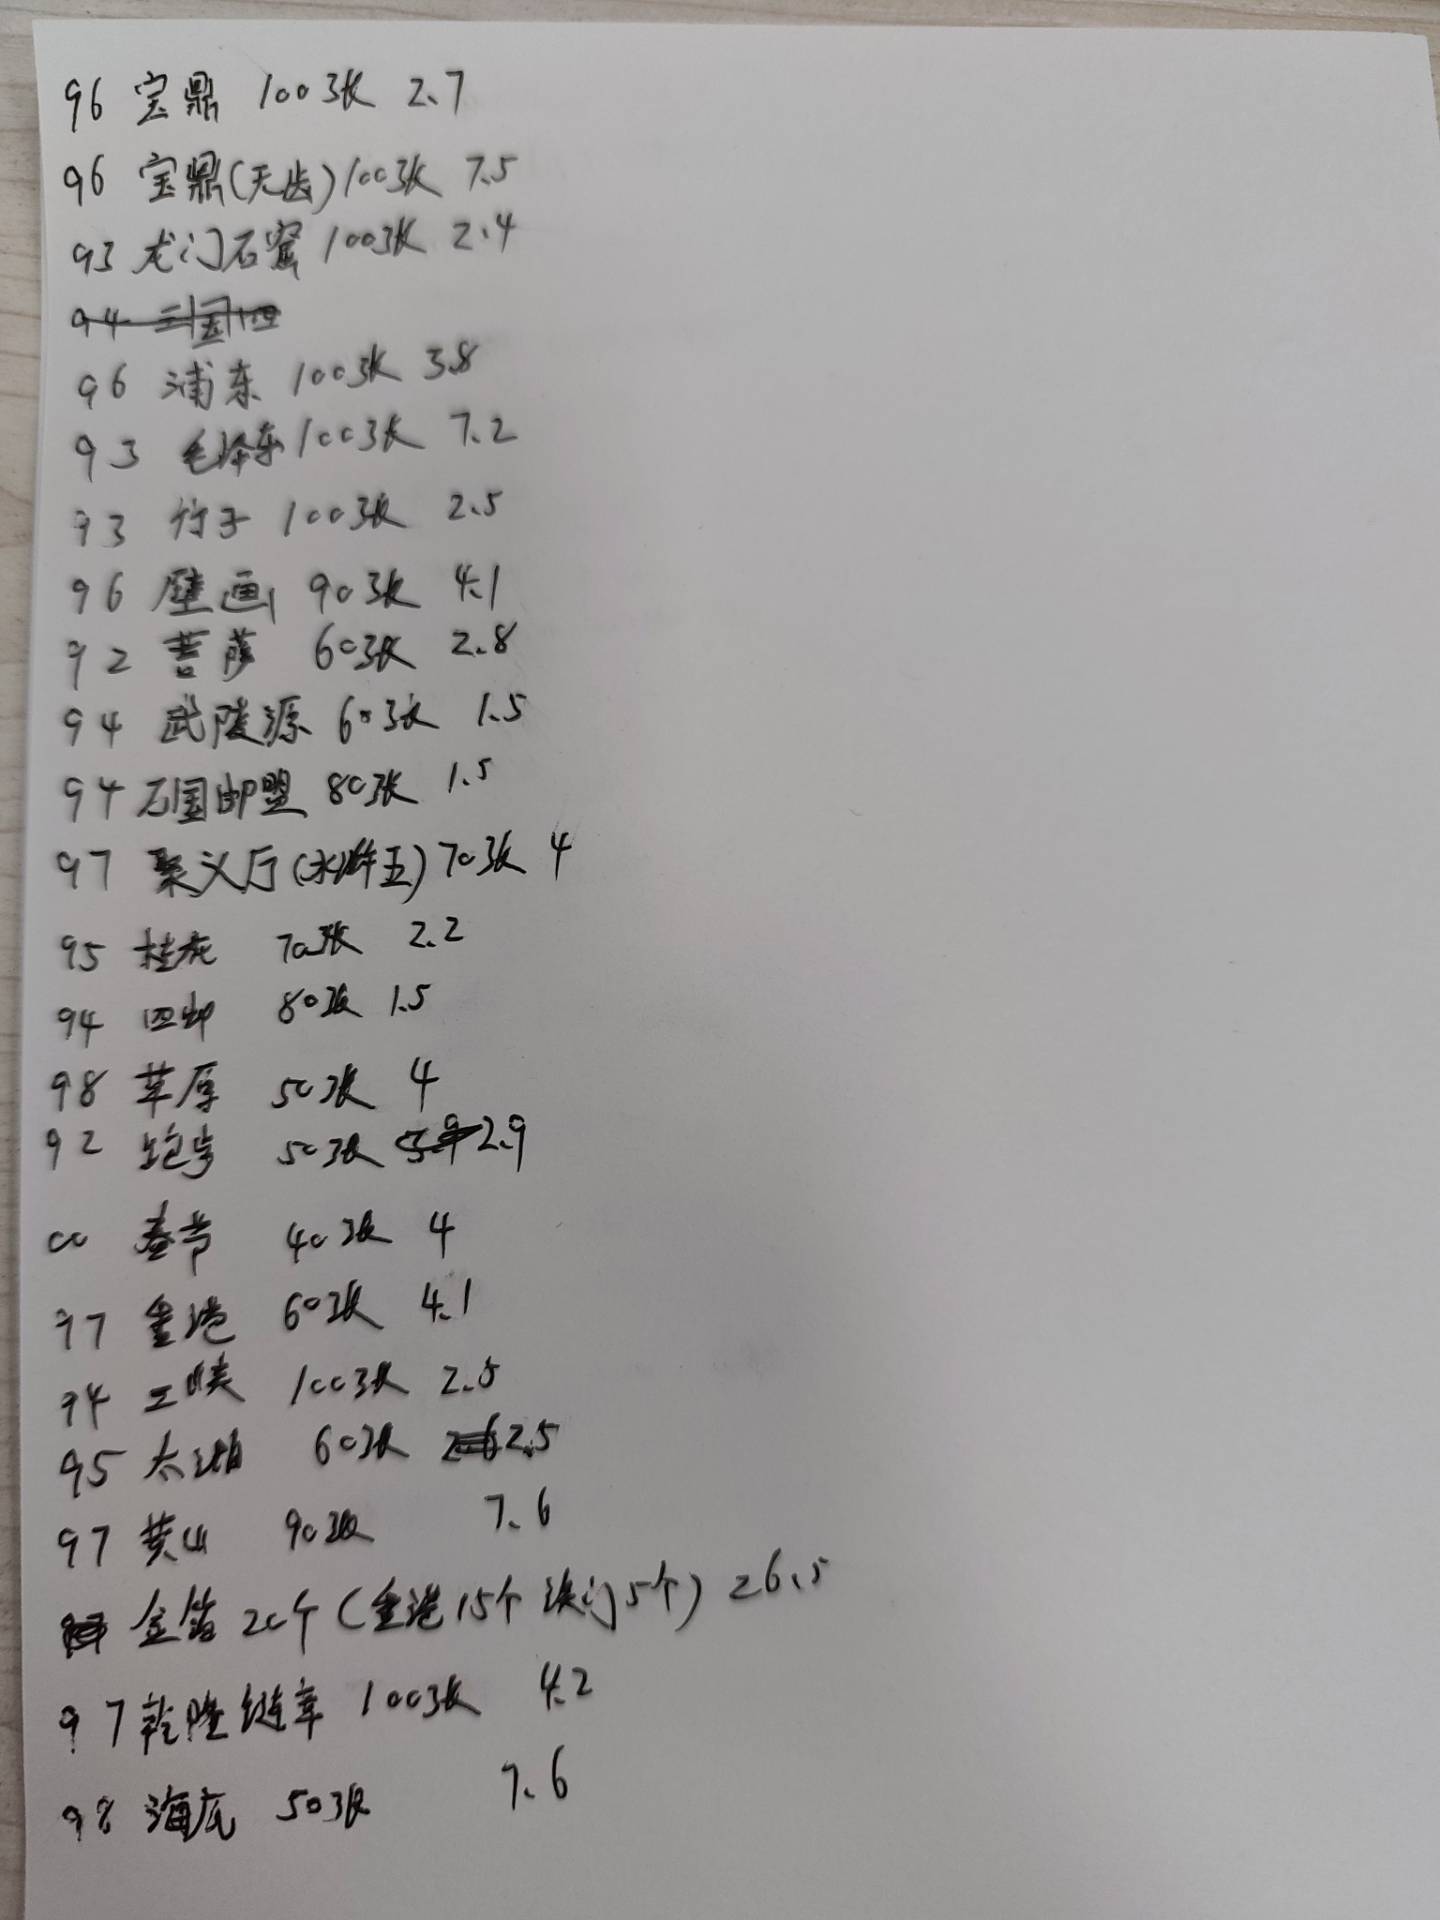 96 宝鼎 100张 2.7
96 宝鼎(无齿)100张 7.5
93 龙门石窟 100张 2.4
94 三国
96 浦东 100张 3.8
93 毛泽东 100张 7.2
93 竹子 100张 2.5
96 壁画 90张 4.1
92 菩萨 60张 2.8
94 武陵源 60张 1.5
94 万国邮盟 80张 1.5
97 聚义厅(水浒五)70张 4
95 桂花 70张 2.2
94 四邮 80张 1.5
98 草原 50张 4
92 跑步 50张 2.9
00 春节 40张 4
97 香港 60张 4.1
94 三峡 100张 2.5
95 太湖 60张 2.5
97 黄山 90张 7.6
金箔 20个(香港15个 澳门5个) 26.5
97 乾隆 100张 4.2
98 海底 50张 7.6